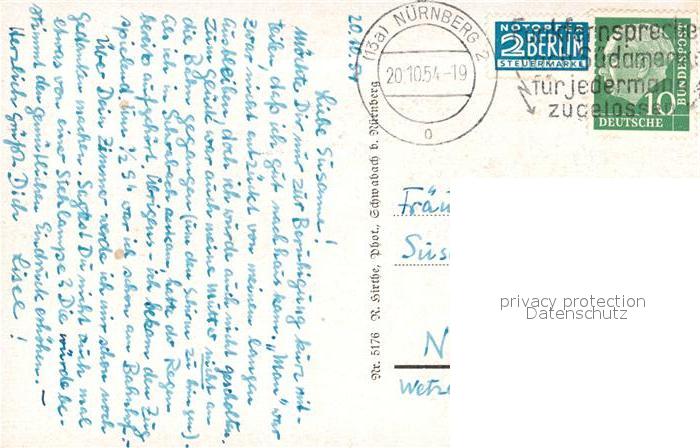 20.10.54
Liebe Susanne!
Möchte Dir nur zur Beruhigung kurz mit-
teilen, daß ich gut nachhaus kam. „Man" war
zwar nicht entzückt von meinem langen
Ausbleiben, doch ich wurde auch nicht gescholten.
Zum Glück war auch meine Mutter nicht an
die Bahn gegangen (um den Schirm zu bringen).
Als ich in Schwabach ankam, hatte der Regen
bereits aufgehört. Übrigens, ich bekam den Zug
spielend, um 1/2 9h war ich schon am Bahnhof.
Über Dein Zimmer werde ich mir schon noch
Gedanken machen. Sagtest Du nicht auch mal
etwas von einer Stehlampe? Die würde be-
stimmt den gemütlichen Eindruck erhöhen. –
Herzlich grüßt Dich Lisel!
Nr. 5176 R. Hirthe, Phot., Schwabach b. Nürnberg
(13a) NÜRNBERG 2
20.10.54-19
o
NOTOPFER
2 BERLIN
STEUERMARKE
Funkfernspreche
Südamerik
für jedermann
zugelassen
10
DEUTSCHE
BUNDESPOST
Fräu
Sus
N
Wetz
privacy protection
Datenschutz